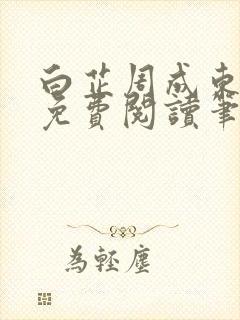 白芷周成東
免費閱讀筆
為輕塵